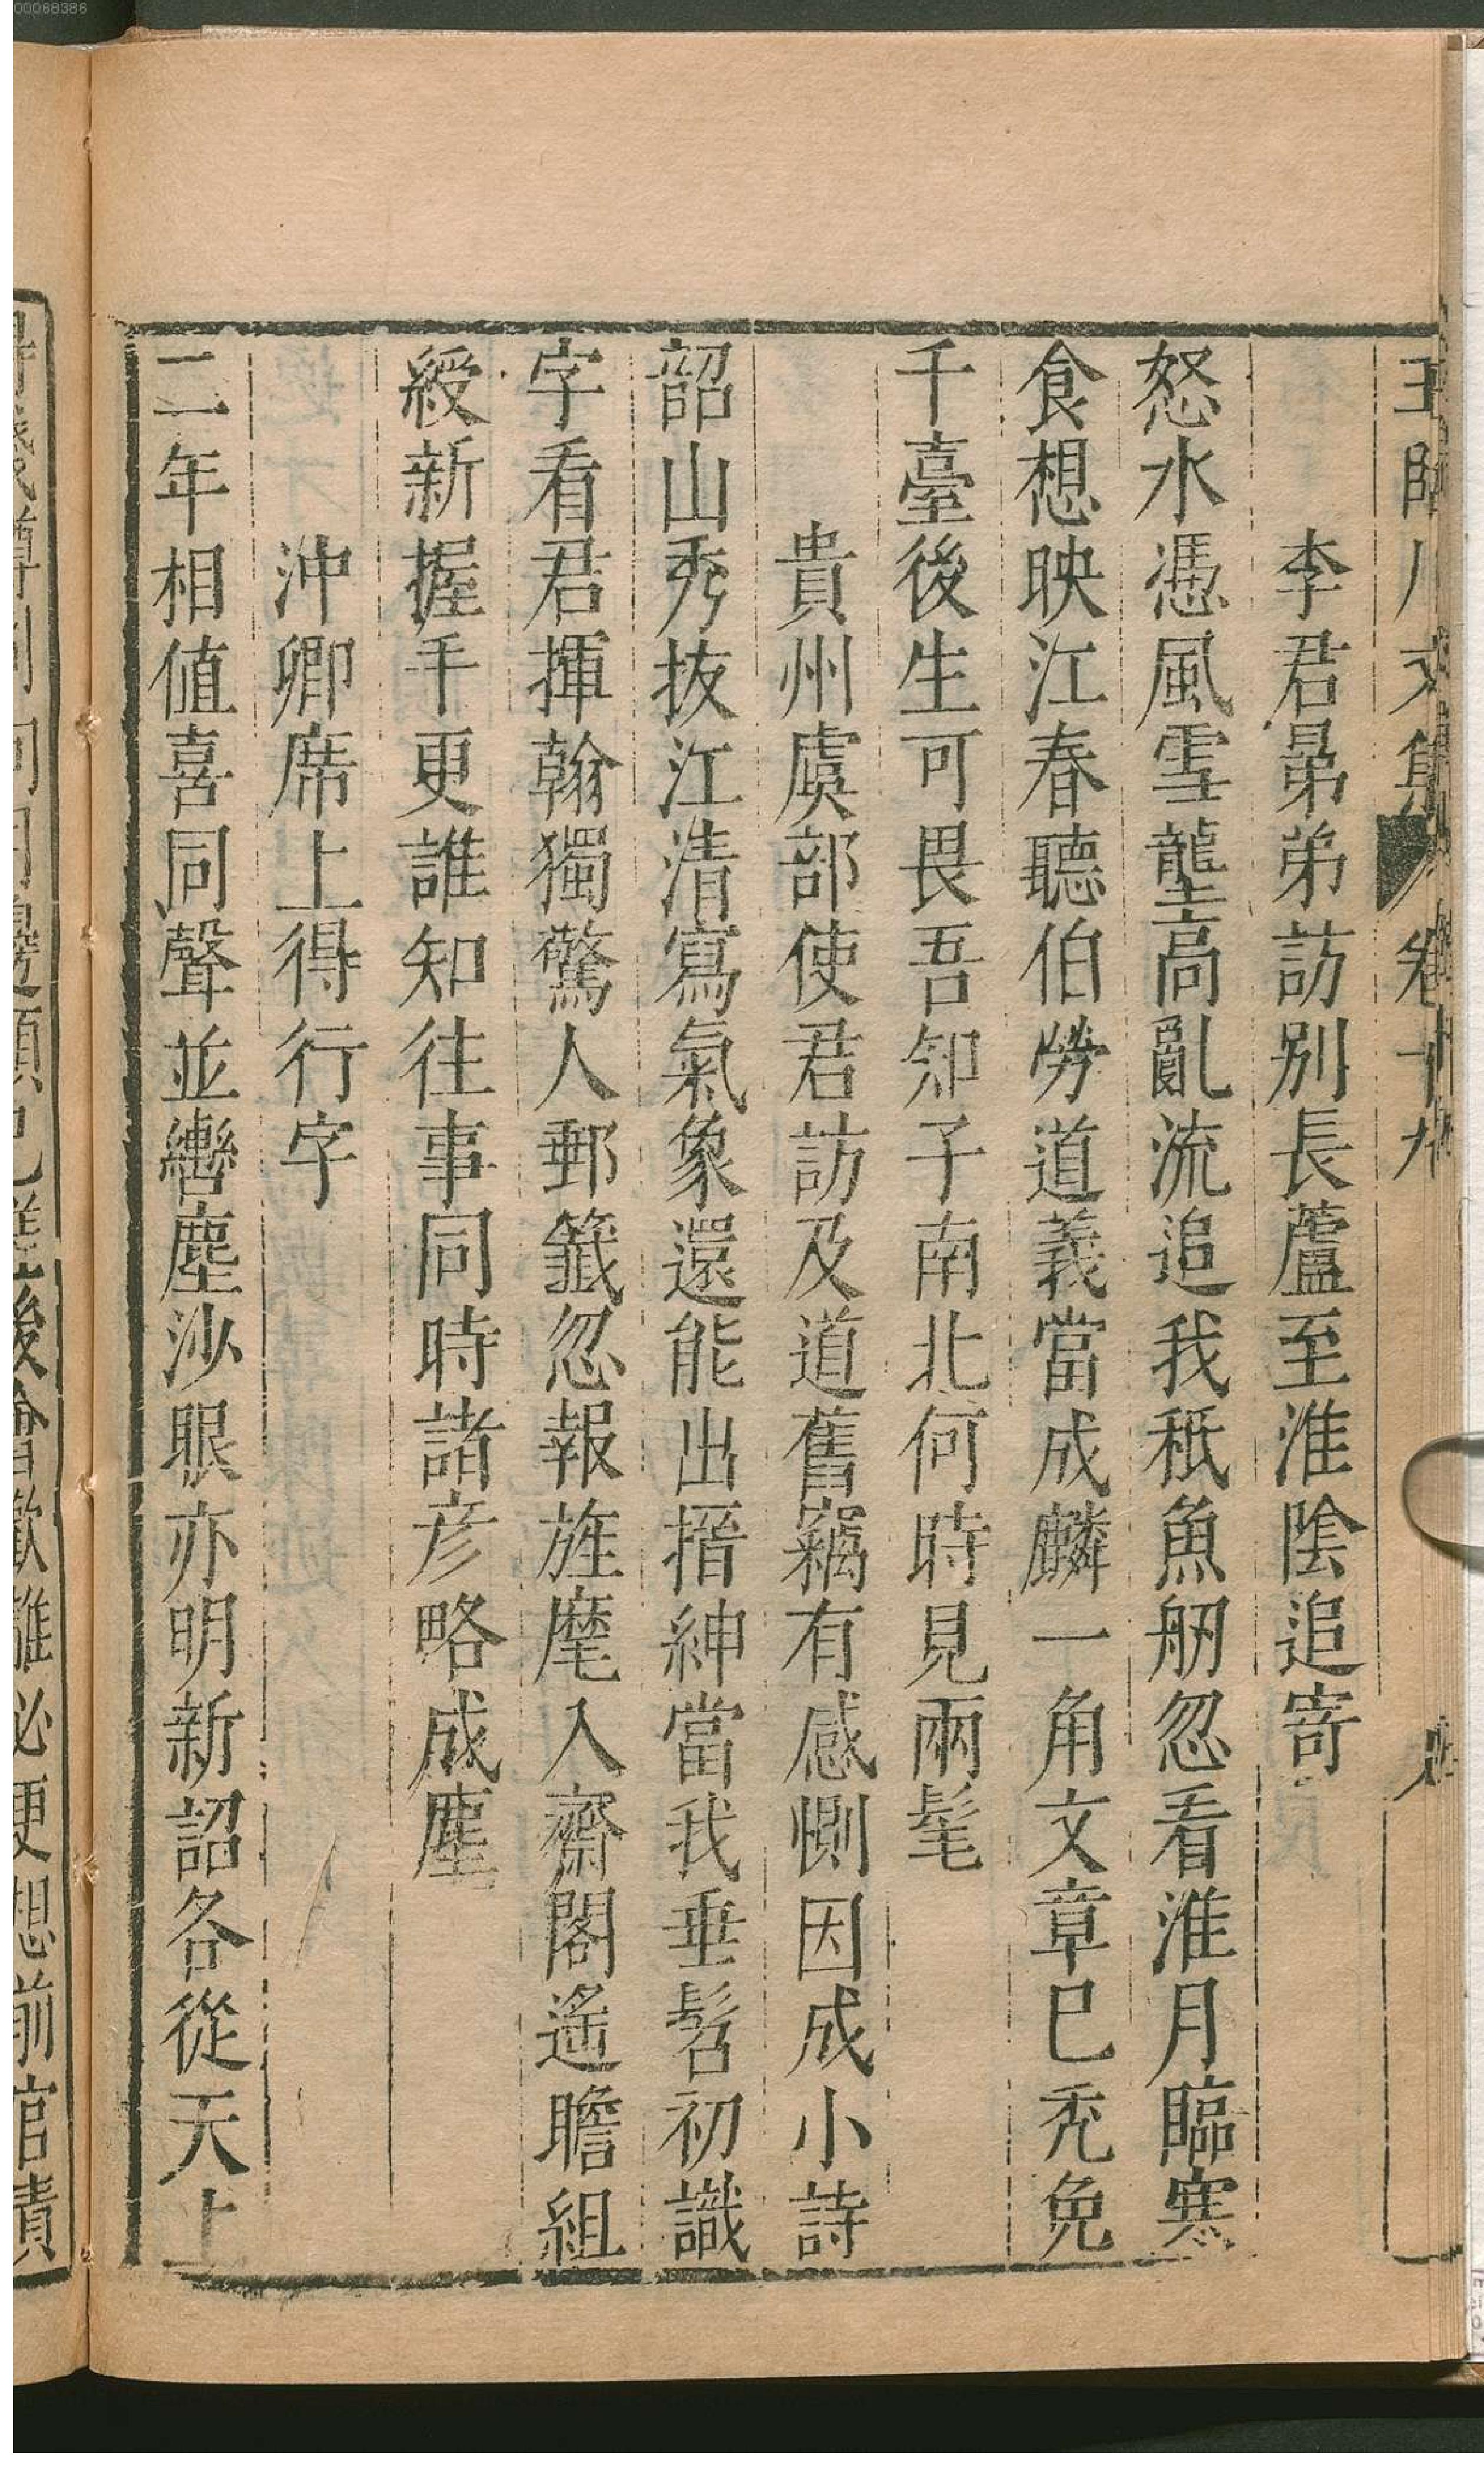 00068386
李君晜弟訪別長蘆至淮陰追寄
怒水憑風雪壟高亂流追我秖魚舠忽看淮月臨寒
食想映江春聽伯勞道義當成麟一角文章巳禿兔
千臺後生可畏吾知子南北何時見兩髦
貴州虞部使君訪及道舊竊有感惻因成小詩
韶山秀拔江清寫氣象還能出搢紳當我垂髫初識
字看君揮翰獨驚人郵籤忽報旌麾入齋閣遙瞻組
綬新握手更誰知往事同時諸彦略成塵
沖卿席上得行字
二年相值喜同聲並轡塵沙眼亦明新詔各從天上